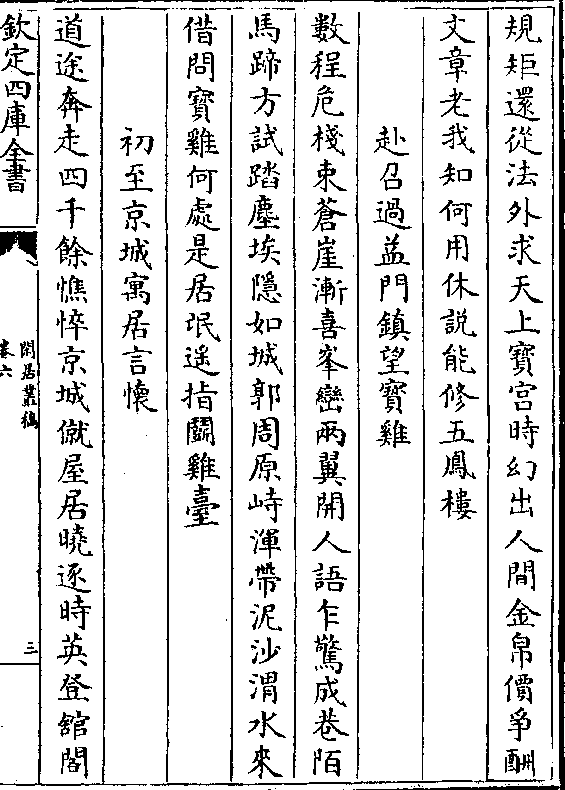 規矩還從法外求天上寶宫時幻出人間金帛價爭酬
文章老我知何用休説能修五鳳樓
赴召過益門鎮望寶雞
數程危棧束蒼崖漸喜峯巒兩翼開人語乍驚成巷陌
馬蹄方試踏塵埃隱如城郭周原峙渾帶泥沙渭水來
借問寶雞何處是居氓遥指鬬雞臺
初至京城寓居言懷
道途奔走四千餘憔悴京城僦屋居曉逐時英登舘閣
欽定四庫全書
閒居叢稿
卷六
三